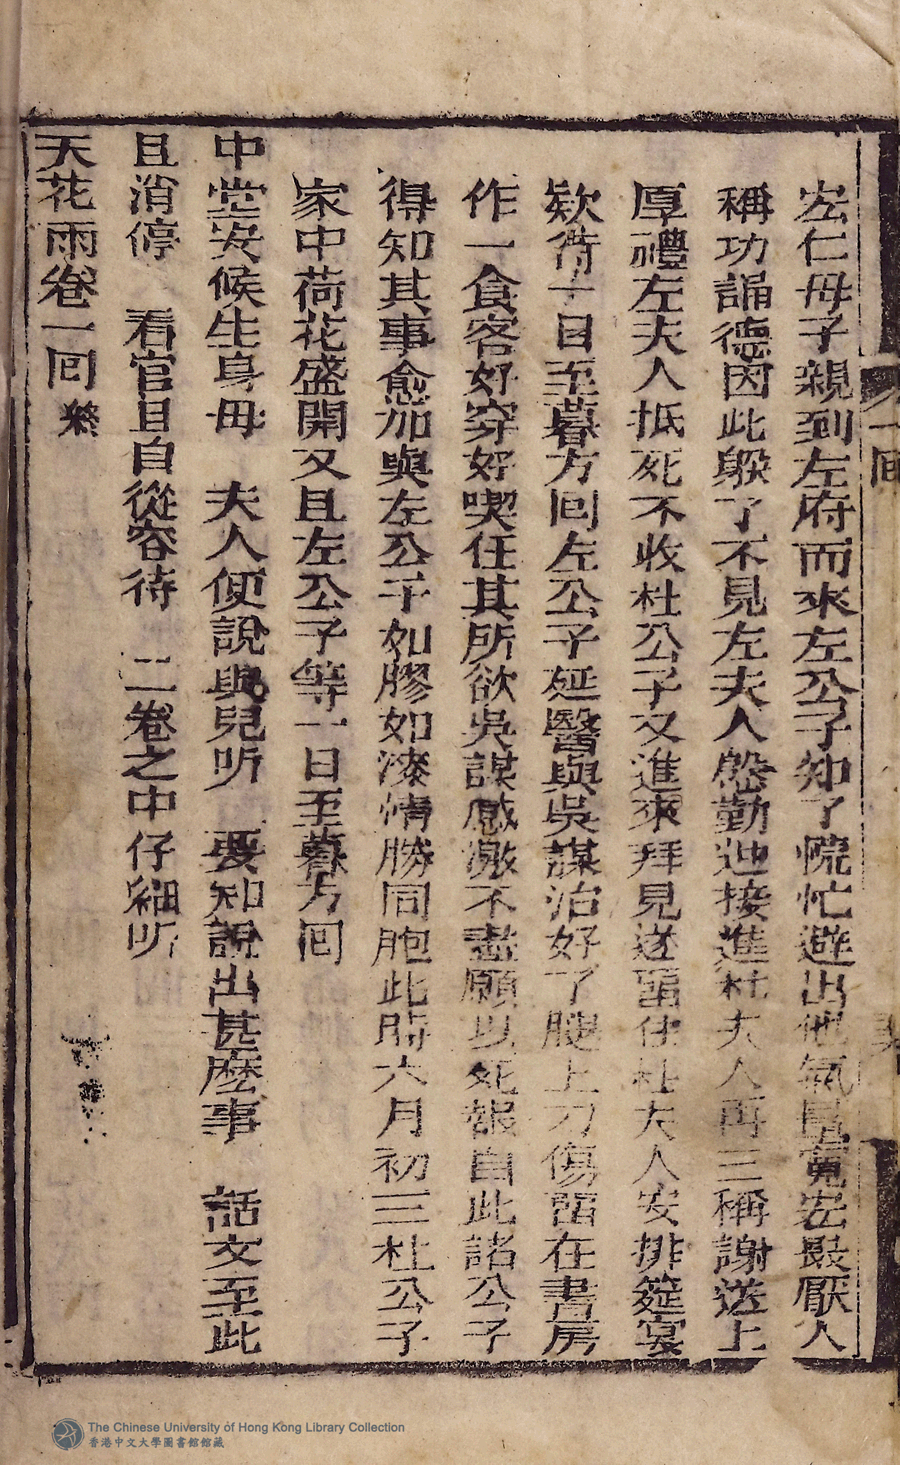 宏仁母子親到左府而來左公子知了慌忙避出他氣局寬宏最厭人
稱功誦德因此躲了不見左夫人慇勤迎接進杜夫人再三稱謝送上
厚禮左夫人抵死不收杜公子又進來拜見送畱住杜夫人安排筵宴
欵待一日至暮方回左公子延醫與吳謀治好了腿上刀傷畱在書房
作一食客好穿好喫任其所欲吳謀感激不盡願以死報自此諸公子
得知其事愈加與左公子如膠如漆情勝同胞此時六月初三杜公子
家中荷花盛開又且左公子等一日至暮方回
中堂安候生身母 夫人便說與兒听 要知說出甚麽事 話文至此
且消停 看官且自從容待 二卷之中仔細听
天花雨卷一回 終
一回
The Chinese University of Hong Kong Library Collection
香港中文大學圖書館館藏